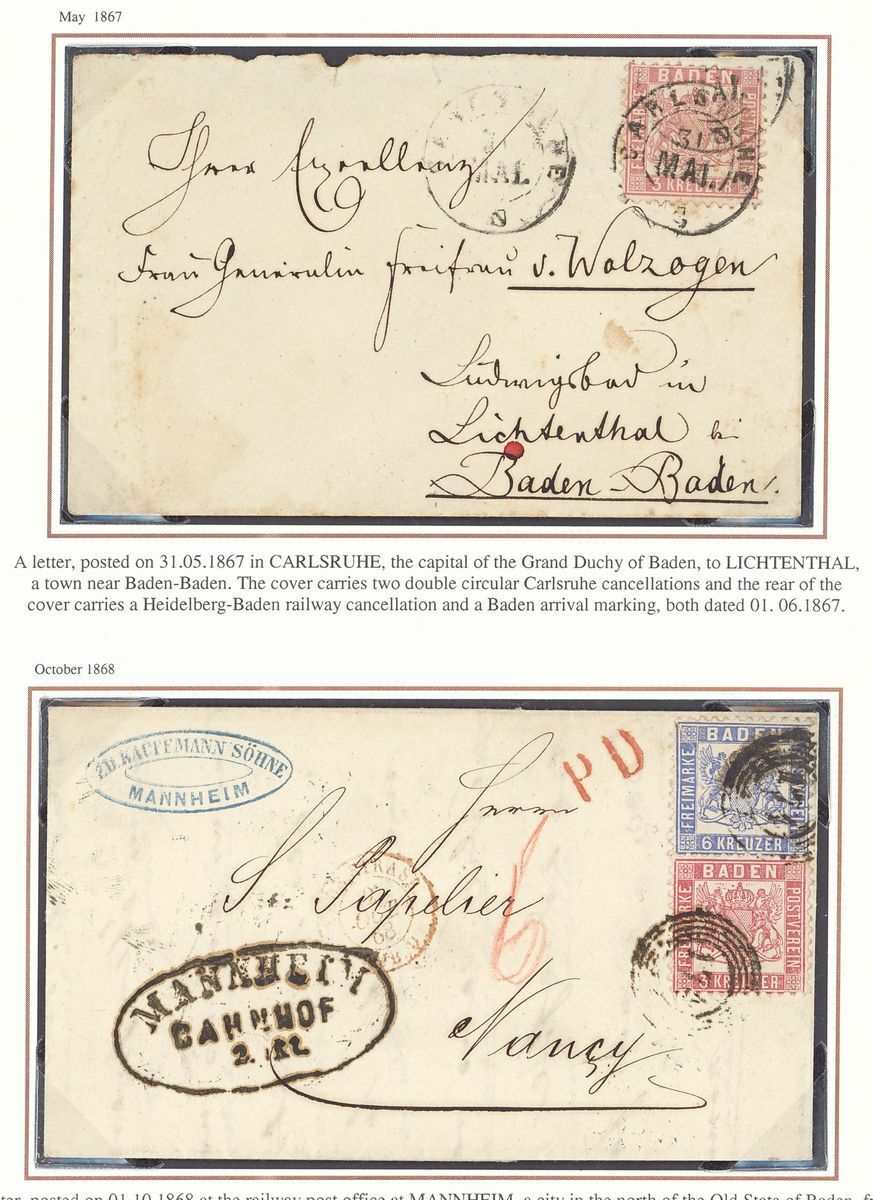 May 1867
BADEN
FREIMARKE
POSTVEREIN
3 KREUZER
CARLSRUHE
31
MAI.
Ihrer Exzellenz
Frau Generalin Freifrau v. Wolzogen
Ludwigsbad in
Lichtenthal bei
Baden-Baden.
A letter, posted on 31.05.1867 in CARLSRUHE, the capital of the Grand Duchy of Baden, to LICHTENTHAL,
a town near Baden-Baden. The cover carries two double circular Carlsruhe cancellations and the rear of the
cover carries a Heidelberg-Baden railway cancellation and a Baden arrival marking, both dated 01. 06.1867.
October 1868
ED. KAUFEMANN SÖHNE
MANNHEIM
PD
BADEN
FREIMARKE
6 KREUZER
Herrn
S. Papelier
6
BADEN
FREIMARKE
POSTVEREIN
3 KREUZER
MANNHEIM
BAHNHOF
Nancy
posted on 01.10.1868 at the railway post office at MANNHEIM, a city in the north of the Old State of Baden,